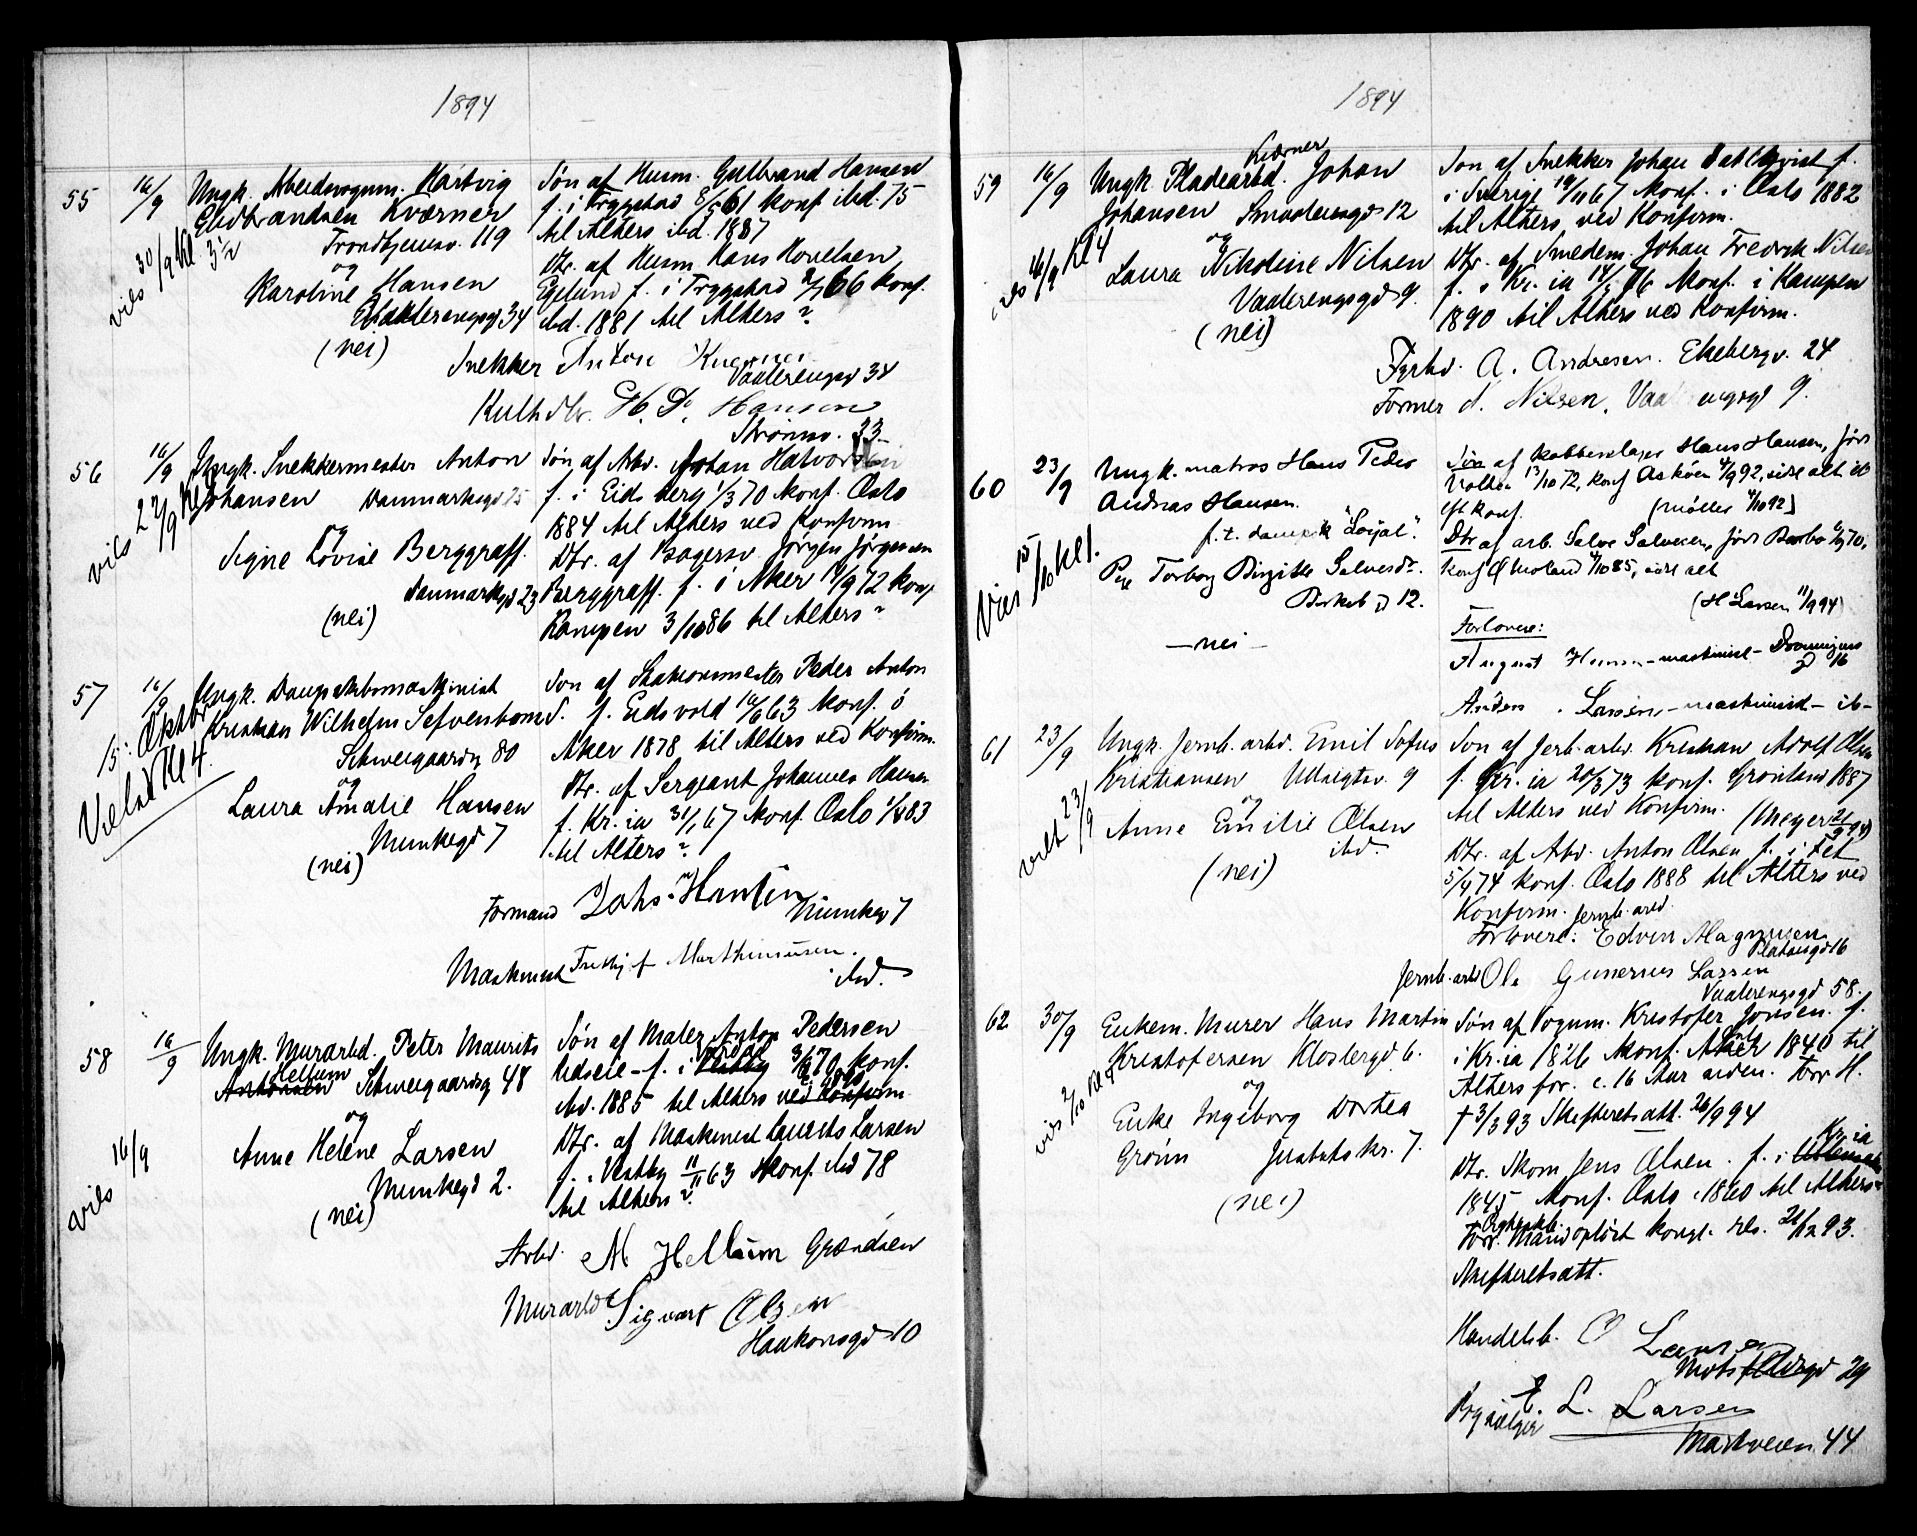 1894
55 16/9 Ungk. Arbeidsvognm. Hartvig
Gudbrandsen Kværner
Trondhjemsv. 119
og
Karoline Hansen
Vaalerengsgd 34
(nei)
vies 30/9 Kl 3½
Søn af Husm. Gulbrand Hansen
f. i Trygstad 8/5 61 konf. ibd. 75
til Alters ibd. 1887
Dtr. af Husm. Hans Hovelsen
Egelund f. i Trygstad 2/7 66 konf.
ibd. 1881 til Alters?
Snekker Anton
Vaalerengsgd 34
Kulhdlr. H. P. Hansen
Strømsv. 33
56 16/9 Ungk. Snekkermester Anton
Johansen Danmarksgd 25
og
Signe Lovise Berggraff.
Danmarksgd 23
(nei)
vies 27/9 Kl
Søn af Arb. Johan Halvorsen
f. i Eidsberg 1/3 70 Konf. Oslo
1884 til Alters ved Konfirm.
Dtr. af Bogersv. Jørgen Jørgensen
Berggraff. f. i Aker 19/9 72 konf
Kampen 3/10 86 til Alters?
57 16/9 Ungk. Dampskibsmaskinist
Kristian Wilhelm Sefvenbom
Schweigaardsg 80
og
Laura Amalie Hansen
Munkegd 7
(nei)
15: Oktbr
Vielse Kl 4.
Søn af Stationsmester Peder Anton
S. f. Eidsvold 16/6 63 Konf. i
Aker 1878 til Alters ved Konfirm.
Dtr. af Sergeant Johannes Hansen
f. Kr.ia 31/1 67 Konf. Oslo 1/4 83
til Alters?
Formand Johs. Hansen
Munkegd 7
Maskinist Fridtjof Marthinusen.
ibd.
58 16/9 Ungk. Murarbd. Peter Maurits
Hellum
Antonsen Schweigaardsg 48
og
Anne Helene Larsen
Munkegd 2.
(nei)
vies 16/9
Søn af Maler Anton Pedersen
f. i Vestby 3/ 70 konf.
ibd. 1885 til Alters ved Konfirm
Dtr. af Maskinist Laurits Larsen
f. i Vestby 11/11 63 Konf. ibd 78
til Alters?
Arbd. M Hellum Grændsen
Murarbd Sigvart Olsen
Haakonsgd 10
1894
59 16/9 Ungk. Pladearbd. Johan
Kværner
Johansen Smaalensgd 12
og
Laura Nikoline Nilsen
Vaalerengsgd 9.
(nei)
vies 16/9 Kl 4
Søn af Snekker Johan Dahlkvist f.
i Sverige 19/11 67 Konf. i Oslo 1882
til Alters ved Konfirm.
Dtr. af Smedem. Johan Fredrik Nilsen
f. i Kr.ia 14/5 76 Konf. i Kampen
1890 til Alters ved Konfirm.
Fyrbd. A. Andresen. Ekebergv. 24
Former A. Nilsen. Vaalerengsgd 9.
60 23/9 Ungk. matros Hans Peder
Andreas Hansen.
f. t. dampsk "Loyal".
Pige Torborg Birgitte Salvesdtr.
12.
— nei —
Vies 15/10 Kl 1.
Søn af Kobberslager Hans Hansen, født
13/10 72, konf Askøen 4/9 92, sidst alt. ib
eft konf. (Møller 4/10 92)
Dtr af arb. Salve Salvesen, født Barbo 6/7 70,
konf Ø. Moland 4/10 85, sidst alt
(H Larsen 11/9 94)
Forlovere:
August — maskinist — Dronningens
gd 16
Anders Larsen — maskinist — ib —
61 23/9 Ungk. Jernb.arbd. Emil Sofus
Kristiansen Udsigtsv. 9
og
Anne Emilie Olsen
ibd.
(nei)
viet 23/9
Søn af Jerb.arbr. Kristian Adolf Olsen
f. Kr.ia 20/3 73 konf. Grønland 1887
til Alters ved Konfirm. (Meyer 21/9 94)
Dtr. af Arbd. Anton Olsen f. i Fet
5/4 74 konf. Oslo 1888 til Alters ved
Konfirm. Jernb.arbd.
Forlovere: Edvin Magnusen
Platousgd 16
Jernb.arbd Ole Gunerius Larsen
Vaalerengsgd 58.
62 30/9 Enkem. Murer Hans Martin
Kristofersen Klostergd 6.
og
Enke Ingeborg Dortea
Grønn Justitskr. 7.
(nei)
Søn af Vognm. Kristofer Jonsen. f.
i Kr.ia 1826 Konf. Aker 1840 til
Alters for. c. 16 Aar siden. Forr H.
† 3/3 93 Skifteretsatt. 26/9 94
Kr.ia
Dtr. Skom. Jens Olsen. f. i
1845 Konf. Oslo 1860 til Alters?
Forr. opløst kongl. res. 21/12 93.
Skifteretsatt.
Handelsb. O Larsen
29
L. Larsen
Markveien 44